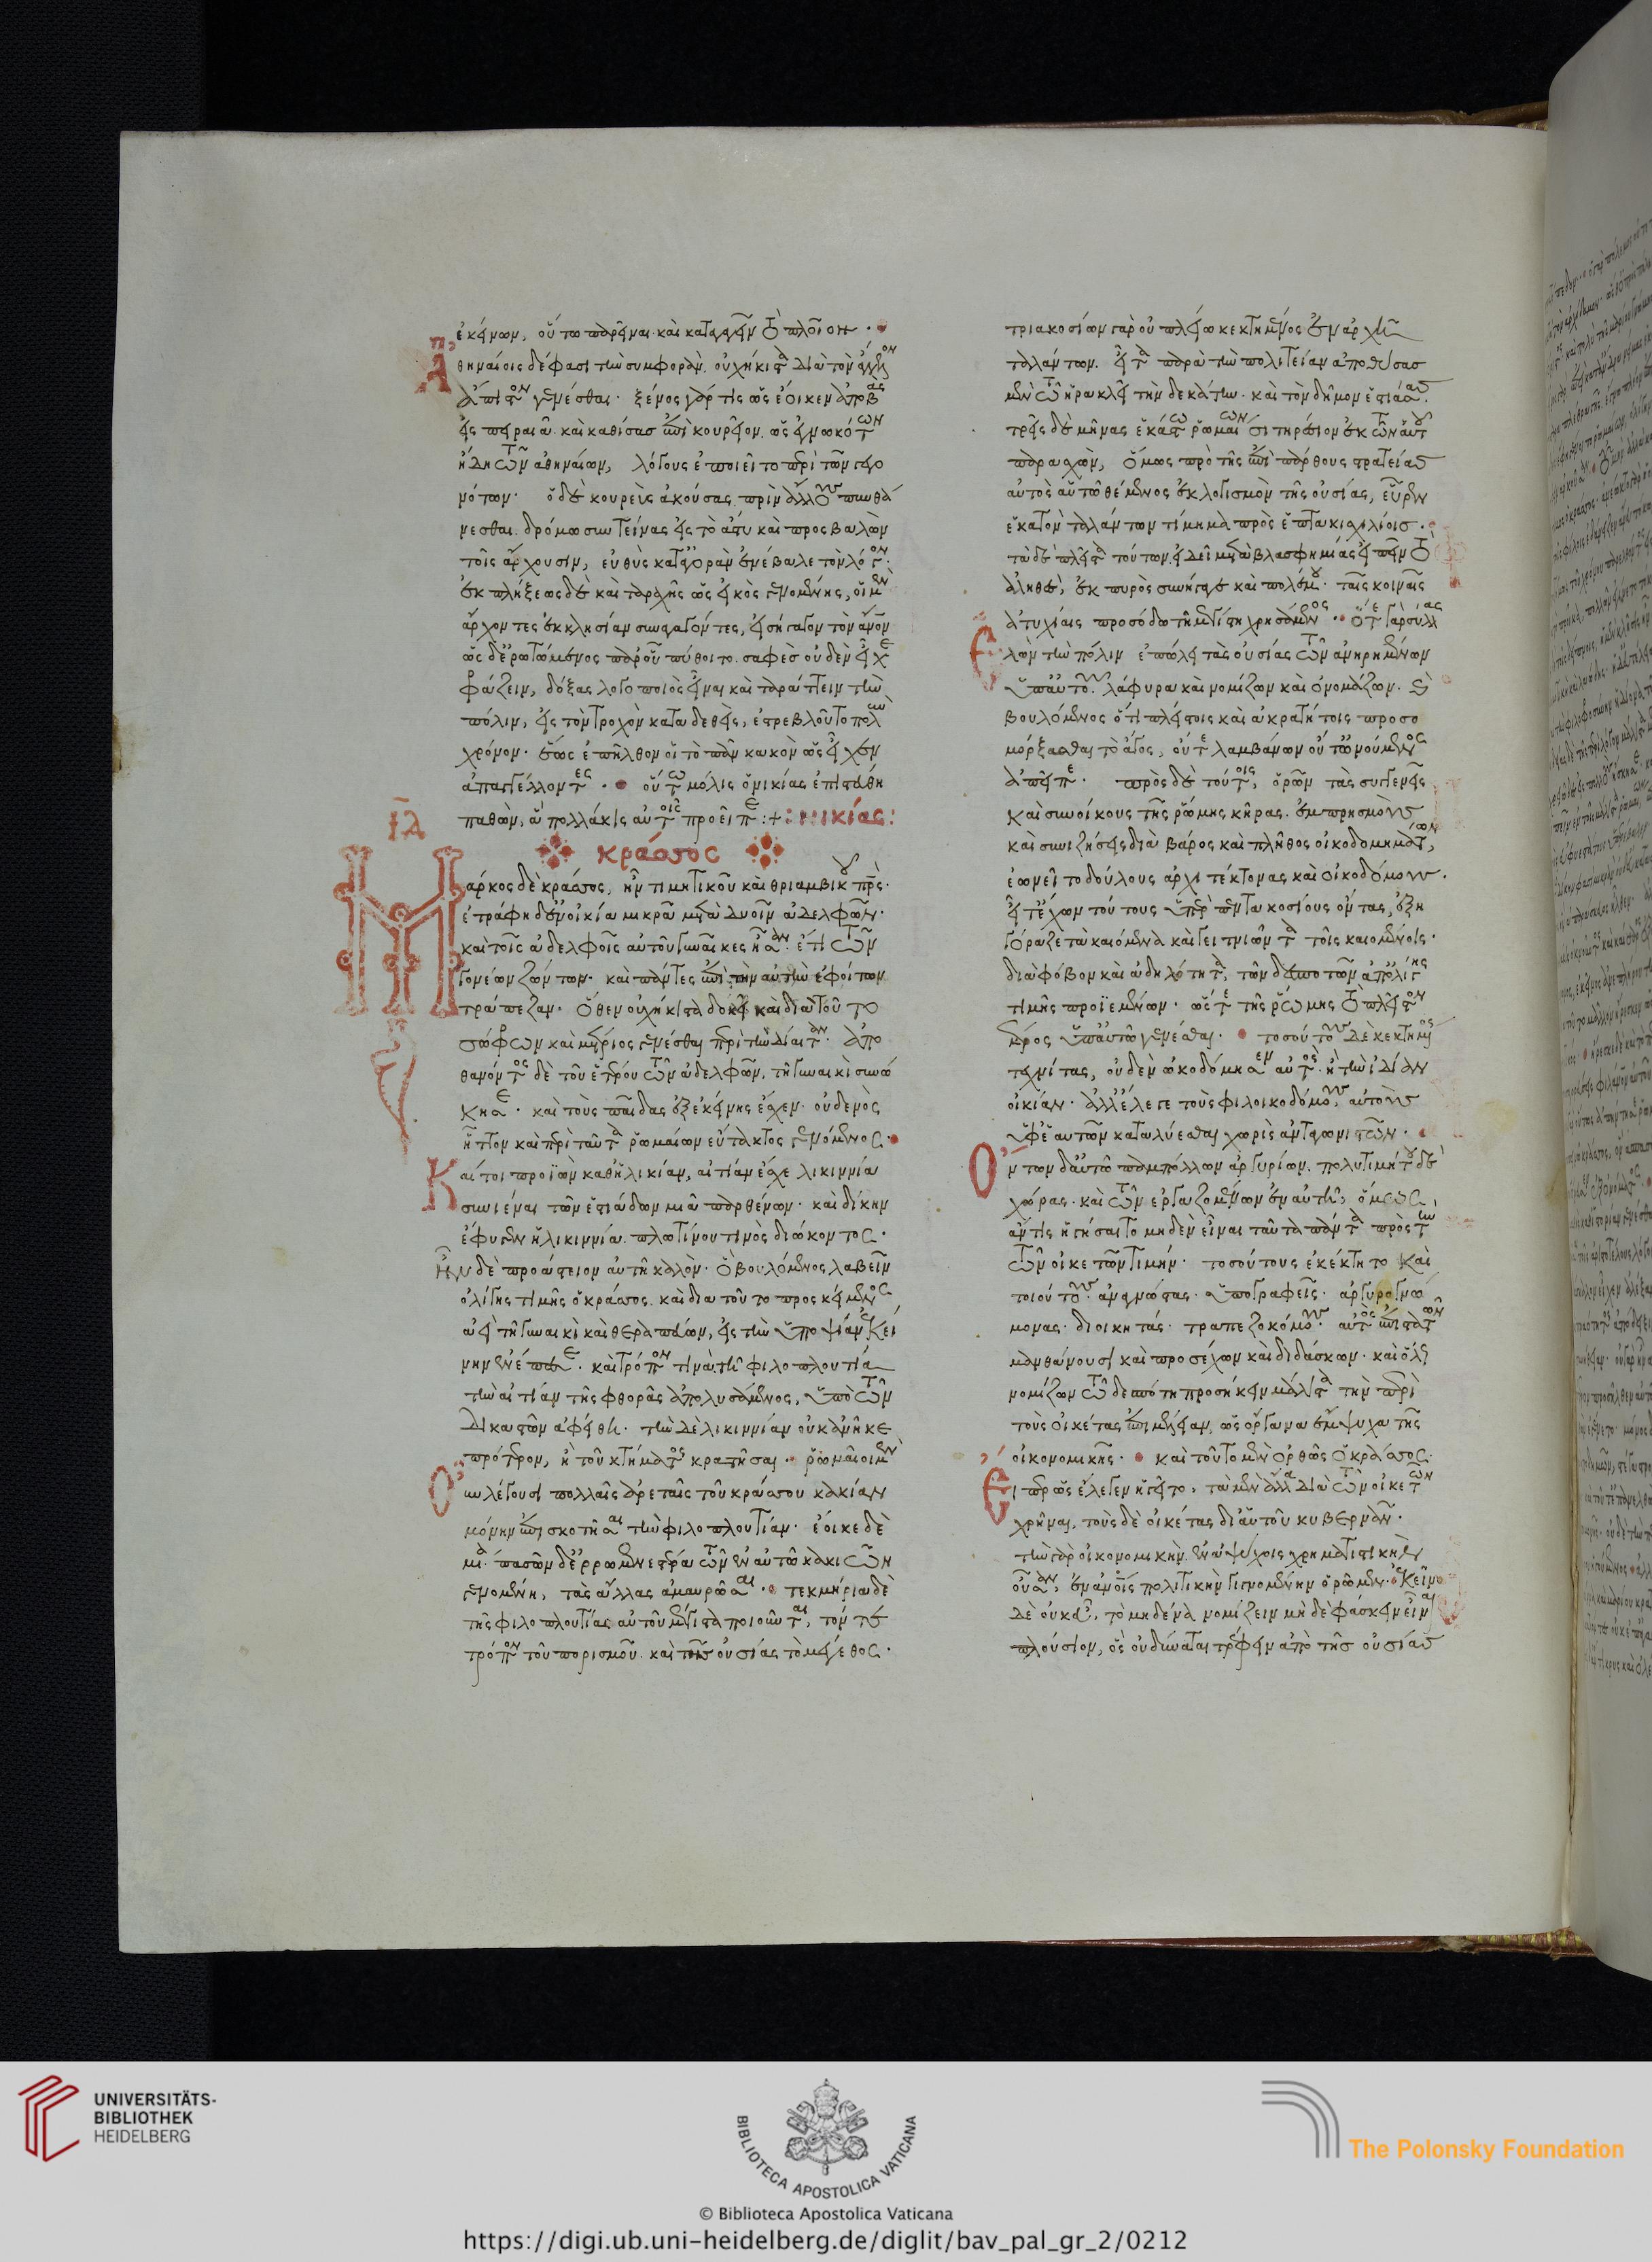 ἐκείνων, οὕτω παρεῖναι καὶ καταγαγεῖν τὸ πλοῖον ·
Ἀθηναίοις δέ φασι τὴν συμφορὰν οὐχ ἥκιστα διὰ τὸν ἄγγελον
ἄπιστον γενέσθαι · ξένος γάρ τις ὡς ἔοικεν ἀποβὰς
εἰς πειραιᾶ καὶ καθίσας ἐπὶ κουρεῖον, ὡς ἐγνωκότων
ἤδη τῶν ἀθηναίων, λόγους ἐποιεῖτο περὶ τῶν γεγο
νότων · ὁ δὲ κουρεὺς ἀκούσας, πρὶν ἄλλους πυνθά
νεσθαι, δρόμω συντείνας εἰς τὸ ἄστυ καὶ προσβαλὼν
τοῖς ἄρχουσιν, εὐθὺς κατ' ἀγορὰν ἐνέβαλε τὸν λόγον ·
ἐκπλήξεως δὲ καὶ ταραχῆς ὡς εἰκὸς γενομένης, οἱ μὲν
ἄρχοντες ἐκκλησίαν συναγαγόντες, εἰσήγαγον τὸν ἄνον
ὡς δ' ἐρωτώμενος παρ' οὗ πύθοιτο σαφὲς οὐδὲν εἶχε
φράζειν, δόξας λογοποιὸς εἶναι καὶ ταράττειν τὴν
πόλιν, εἰς τὸν τροχὸν καταδεθεὶς, ἐστρεβλοῦτο πολὺν
χρόνον · ἕως ἐπῆλθον οἱ τὸ πᾶν κακὸν ὡς εἶχεν
ἀπαγγέλλοντες · οὕτω μόλις ὁ νικίας ἐπιστεύθη
παθὼν, ἃ πολλάκις αὐτοῖς προεῖπε :+ : νικίας :
ιδ
κράσσος
Μάρκος δὲ κράσσος, ἦν τιμητικοῦ καὶ θριαμβικοῦ πρς ·
ἐτράφη δ' ἐν οἰκία μικρᾶ μετὰ δυοῖν ἀδελφῶν ·
καὶ τοῖς ἀδελφοῖς αὐτοῦ γυναῖκες ἦσαν ἔτι τῶν
γονέων ζώντων · καὶ πάντες ἐπὶ τὴν αὐτὴν ἐφοίτων
τράπεζαν · ὅθεν οὐχ ἥκιστα δοκεῖ καὶ διὰ τοῦτο
σώφρων καὶ μέτριος γενέσθαι περὶ τὴν δίαιταν · ἀπο
θανόντος δὲ τοῦ ἑτέρου τῶν ἀδελφῶν, τῆ γυναικὶ συνώ
κησε · καὶ τοὺς παῖδας ἐξ ἐκείνης ἔσχεν · οὐδενὸς
ἧττον καὶ περὶ ταῦτα ῥωμαίων εὔτακτος γενόμενος ·
Καίτοι προϊὼν καθ' ἡλικίαν, αἰτίαν ἔσχε λικιννία
συνιέναι τῶν ἑστιάδων μιᾶ παρθένων · καὶ δίκην
ἔφυγεν ἡ λικιννία πλωτίνου τινὸς διώκοντος ·
Ἦν δὲ προάστειον αὐτῆ καλὸν · ὃ βουλόμενος λαβεῖν
ὀλίγης τιμῆς ὁ κράσσος, καὶ διὰ τοῦτο προσκείμενος
ἀεὶ τῆ γυναικὶ καὶ θεραπεύων, εἰς τὴν ὑποψίαν ἐκεί
νην ἐνέπεσε · καὶ τρόπον τινὰ τῆ φιλοπλουτία
τὴν αἰτίαν τῆς φθορᾶς ἀπολυσάμενος, ὑπὸ τῶν
δικαστῶν ἀφείθη · τὴν δὲ λικιννίαν οὐκ ἀνῆκε
πρότερον, ἢ τοῦ κτήματος κρατῆσαι · ῥωμαῖοι μὲν
Οὖν λέγουσι πολλαῖς ἀρεταῖς τοῦ κράσσου κακίαν
μόνην ἐπισκοτῆσαι τὴν φιλοπλουτίαν · ἔοικε δὲ
μία πασῶν δ' ἐρρωμενεστέρα τῶν ἐν αὐτῶ κακιῶν
γενομένη, τὰς ἄλλας ἀμαυρῶσαι · τεκμήρια δὲ
τῆς φιλοπλουτίας αὐτοῦ μέγιστα ποιοῦνται, τόν τε
τρόπον τοῦ πορισμοῦ καὶ τῆς οὐσίας τὸ μέγεθος ·
τριακοσίων γὰρ οὐ πλείω κεκτημένος ἐν ἀρχῆ
ταλάντων, εἶτα παρὰ τὴν πολιτείαν ἀποθύσας
μὲν τῶ ἡρακλεῖ τὴν δεκάτην · καὶ τὸν δῆμον ἑστιάσας ·
τρεῖς δὲ μῆνας ἑκάστω ῥωμαίων σιτηρέσιον ἐκ τῶν αὑτοῦ
παρασχὼν, ὅμως πρὸ τῆς ἐπὶ πάρθους στρατείας
αὐτὸς αὑτῶ θέμενος ἐκλογισμὸν τῆς οὐσίας, εὗρεν
ἑκατὸν ταλάντων τίμημα πρὸς ἑπτακισχιλίοις ·
τὰ δὲ πλεῖστα τούτων, εἰ δεῖ μετὰ βλασφημίας εἰπεῖν τὸ
ἀληθὲς, ἐκ πυρὸς συνήγαγε καὶ πολέμου · ταῖς κοιναῖς
ἀτυχίαις προσόδω τῆ μεγίστη χρησάμενος · ὅτε γὰρ σύλλας
Ἑλὼν τὴν πόλιν ἐπώλει τὰς οὐσίας τῶν ἀνηρημένων
ὑπ' αὐτοῦ, λάφυρα καὶ νομίζων καὶ ὀνομάζων · καὶ
βουλόμενος ὅτι πλείστοις καὶ κρατίστοις προσο
μόρξασθαι τὸ ἄγος, οὔτε λαμβάνων οὔτ' ὠνούμενος
ἀπεῖπε · πρὸς δὲ τούτοις, ὁρῶν τὰς συγγενεῖς
καὶ συνοίκους τῆς ῥώμης κῆρας, ἐμπρησμοὺς
καὶ συνιζήσεις διὰ βάρος καὶ πλῆθος οἰκοδομημάτων,
ἐωνεῖτο δούλους ἀρχιτέκτονας καὶ οἰκοδόμους ·
εἶτ' ἔχων τούτους ὑπὲρ πεντακοσίους ὄντας, ἐξη
γόραζε τὰ καιόμενα καὶ γειτνιῶντα τοῖς καιομένοις ·
διὰ φόβον καὶ ἀδηλότητα, τῶν δεσποτῶν ἀπ' ὀλίγης
τιμῆς προϊεμένων · ὥστε τῆς ῥώμης τὸ πλεῖστον
μέρος ὑπ' αὐτῶ γενέσθαι · τοσούτους δὲ κεκτημένος
τεχνίτας, οὐδὲν ὠκοδόμησεν αὐτὸς ἢ τὴν ἰδίαν
οἰκίαν · ἀλλ' ἔλεγε τοὺς φιλοικοδόμους αὐτοὺς
ὑφ' ἑαυτῶν καταλύεσθαι χωρὶς ἀνταγωνιστῶν ·
Ὄντων δ' αὐτῶ παμπόλλων ἀργυρίων, πολυτιμήτου δὲ
χώρας · καὶ τῶν ἐργαζομένων ἐν αὐτῆ, ὅμως,
ἄν τις ἡγήσαιτο μηδὲν εἶναι ταῦτα πάντα πρὸς τὴν
τῶν οἰκετῶν τιμήν · τοσούτους ἐκέκτητο καὶ
τοιούτους · ἀναγνώστας · ὑπογραφεῖς · ἀργυρογνώ
μονας · διοικητάς · τραπεζοκόμους · αὐτὸς ἐπιστατῶν
μανθάνουσι καὶ προσέχων καὶ διδάσκων · καὶ ὅλως
νομίζων τῶ δεσπότη προσήκειν μάλιστα τὴν περὶ
τοὺς οἰκέτας ἐπιμέλειαν, ὡς ὄργανα ἔμψυχα τῆς
οἰκονομικῆς · καὶ τοῦτο μὲν ὀρθῶς ὁ κράσσος ·
Εἴπερ ὡς ἔλεγεν ἡγεῖτο, τὰ μὲν ἄλλα διὰ τῶν οἰκετῶν
χρῆναι, τοὺς δὲ οἰκέτας δι' αὑτοῦ κυβερνᾶν ·
τὴν γὰρ οἰκονομικὴν, ἐν ἀψύχοις χρηματιστικὴν
οὖσαν, ἐν ἀνοις πολιτικὴν γιγνομένην ὁρῶμεν · Ἐκεῖνο
δὲ οὐκ εὖ, τὸ μηδένα νομίζειν μὴ δὲ φάσκειν εἶναι
πλούσιον, ὃς οὐ δύναται τρέφειν ἀπὸ τῆς οὐσίας
UNIVERSITÄTS-
BIBLIOTHEK
HEIDELBERG
BIBLIOTECA APOSTOLICA VATICANA
The Polonsky Foundation
© Biblioteca Apostolica Vaticana
https://digi.ub.uni-heidelberg.de/diglit/bav_pal_gr_2/0212